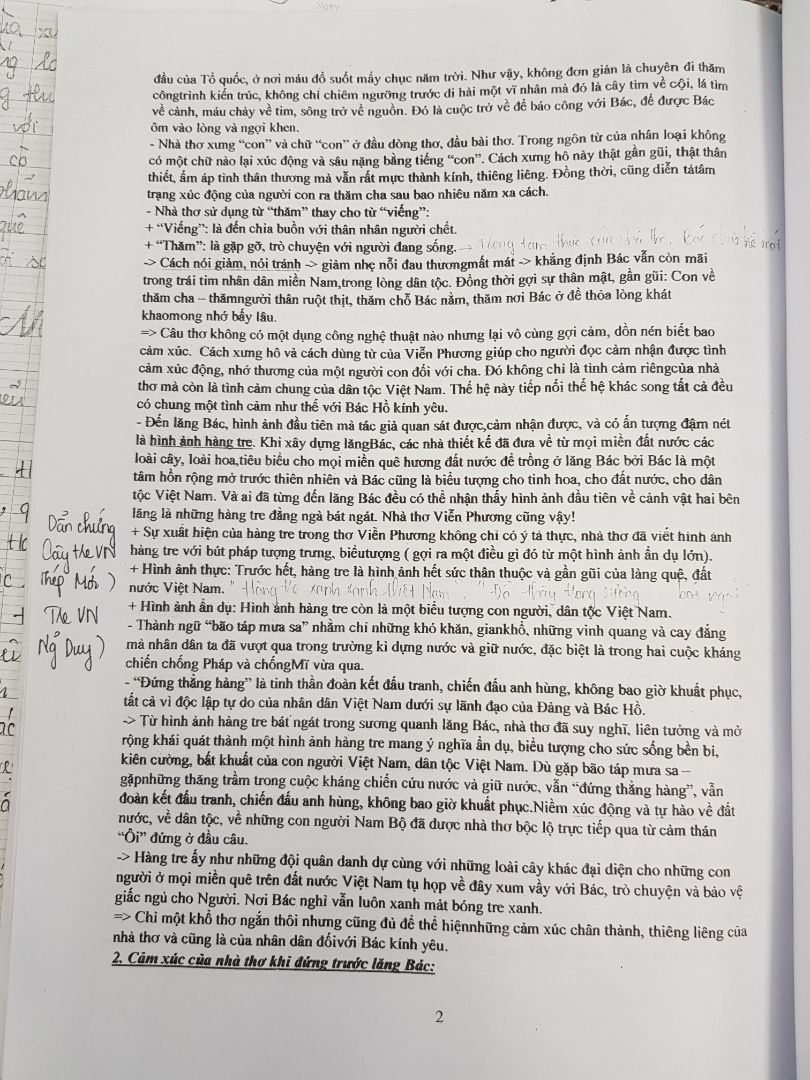 đầu của Tổ quốc, ở nơi máu đổ suốt mấy chục năm trời. Như vậy, không đơn giản là chuyện đi thăm
côngtrình kiến trúc, không chỉ chiêm ngưỡng trước di hài một vĩ nhân mà đó là cây tìm về cội, lá tìm
về cành, máu chảy về tim, sông trở về nguồn. Đó là cuộc trở về để báo công với Bác, để được Bác
ôm vào lòng và ngợi khen.
- Nhà thơ xưng “con” và chữ “con” ở đầu dòng thơ, đầu bài thơ. Trong ngôn từ của nhân loại không
có một chữ nào lại xúc động và sâu nặng bằng tiếng “con”. Cách xưng hô này thật gần gũi, thật thân
thiết, ấm áp tình thân thương mà vẫn rất mực thành kính, thiêng liêng. Đồng thời, cũng diễn tảtâm
trạng xúc động của người con ra thăm cha sau bao nhiêu năm xa cách.
- Nhà thơ sử dụng từ “thăm” thay cho từ “viếng”:
+ “Viếng”: là đến chia buồn với thân nhân người chết.
+ “Thăm”: là gặp gỡ, trò chuyện với người đang sống. -> Trong tâm thức của nhà thơ, Bác
-> Cách nói giảm, nói tránh -> giảm nhẹ nỗi đau thươngmất mát -> khẳng định Bác vẫn còn mãi
trong trái tim nhân dân miền Nam,trong lòng dân tộc. Đồng thời gợi sự thân mật, gần gũi: Con về
thăm cha – thămngười thân ruột thịt, thăm chỗ Bác nằm, thăm nơi Bác ở để thỏa lòng khát
khaomong nhớ bấy lâu.
=> Câu thơ không có một dụng công nghệ thuật nào nhưng lại vô cùng gợi cảm, dồn nén biết bao
cảm xúc. Cách xưng hô và cách dùng từ của Viễn Phương giúp cho người đọc cảm nhận được tình
cảm xúc động, nhớ thương của một người con đối với cha. Đó không chỉ là tình cảm riêngcủa nhà
thơ mà còn là tình cảm chung của dân tộc Việt Nam. Thế hệ này tiếp nối thế hệ khác song tất cả đều
có chung một tình cảm như thế với Bác Hồ kính yêu.
- Đến lăng Bác, hình ảnh đầu tiên mà tác giả quan sát được,cảm nhận được, và có ấn tượng đậm nét
là hình ảnh hàng tre. Khi xây dựng lăngBác, các nhà thiết kế đã đưa về từ mọi miền đất nước các
loài cây, loài hoa,tiêu biểu cho mọi miền quê hương đất nước để trồng ở lăng Bác bởi Bác là một
tâm hồn rộng mở trước thiên nhiên và Bác cũng là biểu tượng cho tinh hoa, cho đất nước, cho dân
tộc Việt Nam. Và ai đã từng đến lăng Bác đều có thể nhận thấy hình ảnh đầu tiên về cảnh vật hai bên
lăng là những hàng tre đằng ngà bát ngát. Nhà thơ Viễn Phương cũng vậy!
+ Sự xuất hiện của hàng tre trong thơ Viễn Phương không chỉ có ý tả thực, nhà thơ đã viết hình ảnh
hàng tre với bút pháp tượng trưng, biểutượng ( gợi ra một điều gì đó từ một hình ảnh ẩn dụ lớn).
+ Hình ảnh thực: Trước hết, hàng tre là hình ảnh hết sức thân thuộc và gần gũi của làng quê, đất
nước Việt Nam. "Hàng tre xanh xanh Việt Nam" "Đã thấy trong sương bát ngát
+ Hình ảnh ẩn dụ: Hình ảnh hàng tre còn là một biểu tượng con người, dân tộc Việt Nam.
- Thành ngữ “bão táp mưa sa” nhằm chỉ những khó khăn, giankhổ, những vinh quang và cay đắng
mà nhân dân ta đã vượt qua trong trường kì dựng nước và giữ nước, đặc biệt là trong hai cuộc kháng
chiến chống Pháp và chốngMĩ vừa qua.
- “Đứng thẳng hàng” là tinh thần đoàn kết đấu tranh, chiến đấu anh hùng, không bao giờ khuất phục,
tất cả vì độc lập tự do của nhân dân Việt Nam dưới sự lãnh đạo của Đảng và Bác Hồ.
-> Từ hình ảnh hàng tre bát ngát trong sương quanh lăng Bác, nhà thơ đã suy nghĩ, liên tưởng và mở
rộng khái quát thành một hình ảnh hàng tre mang ý nghĩa ẩn dụ, biểu tượng cho sức sống bền bỉ,
kiên cường, bất khuất của con người Việt Nam, dân tộc Việt Nam. Dù gặp bão táp mưa sa –
gặpnhững thăng trầm trong cuộc kháng chiến cứu nước và giữ nước, vẫn “đứng thẳng hàng”, vẫn
đoàn kết đấu tranh, chiến đấu anh hùng, không bao giờ khuất phục.Niềm xúc động và tự hào về đất
nước, về dân tộc, về những con người Nam Bộ đã được nhà thơ bộc lộ trực tiếp qua từ cảm thán
“Ôi” đứng ở đầu câu.
-> Hàng tre ấy như những đội quân danh dự cùng với những loài cây khác đại diện cho những con
người ở mọi miền quê trên đất nước Việt Nam tụ họp về đây xum vầy với Bác, trò chuyện và bảo vệ
giấc ngủ cho Người. Nơi Bác nghỉ vẫn luôn xanh mát bóng tre xanh.
=> Chỉ một khổ thơ ngắn thôi nhưng cũng đủ để thể hiệnnhững cảm xúc chân thành, thiêng liêng của
nhà thơ và cũng là của nhân dân đốivới Bác kính yêu.
2. Cảm xúc của nhà thơ khi đứng trước lăng Bác:
2
Dẫn chứng
Cây tre VN
Thép Mới )
Tre VN
Ng Duy )